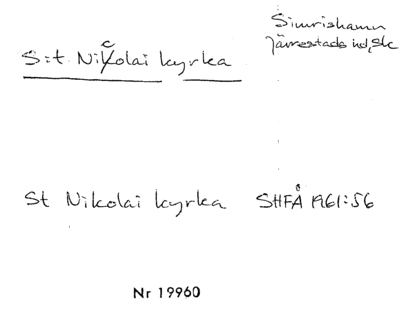 Simrishamn
Järrestads hd, Sk
S:t Nicolai kyrka
St Nikolai kyrka SHFÅ 1961:56
Nr 19960